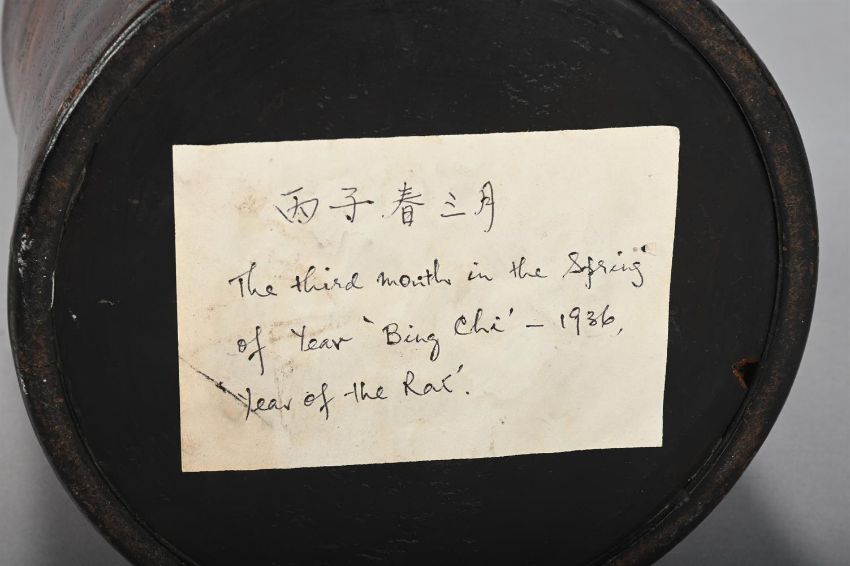 丙子春三月
The third month in the Spring
of Year 'Bing Chi' – 1936,
Year of the Rat'.